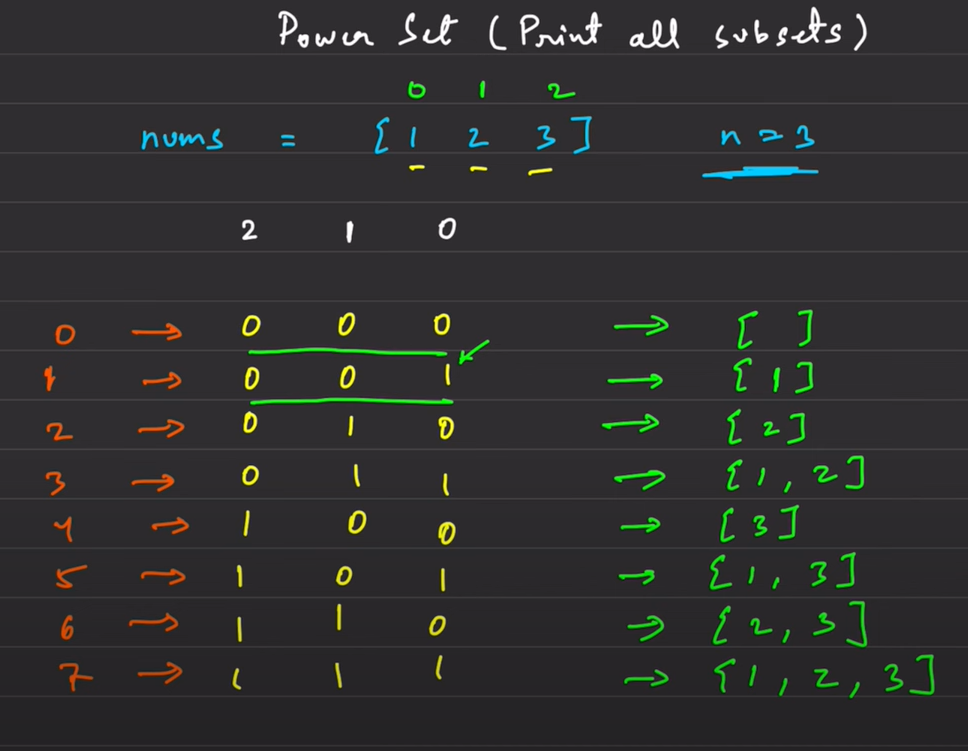 Power Set (Print all subsets)
0 1 2
nums = [1 2 3] n = 3
2 1 0
0 → 0 0 0 → [ ]
1 → 0 0 1 → [1]
2 → 0 1 0 → [2]
3 → 0 1 1 → [1, 2]
4 → 1 0 0 → [3]
5 → 1 0 1 → [1, 3]
6 → 1 1 0 → [2, 3]
7 → 1 1 1 → [1, 2, 3]